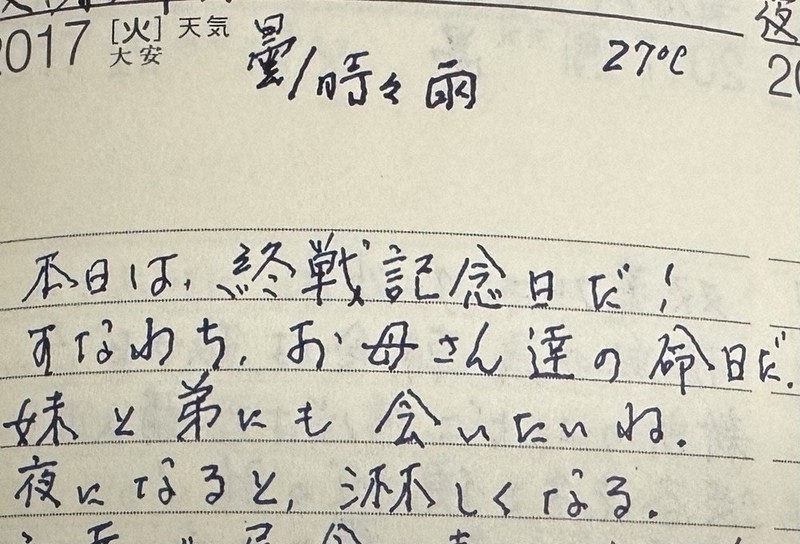 2017 [火] 天気
大安
曇/時々雨 27℃
本日は、終戦記念日だ!
すなわち、お母さん達の命日だ.
妹と弟にも会いたいね.
夜になると、淋しくなる.